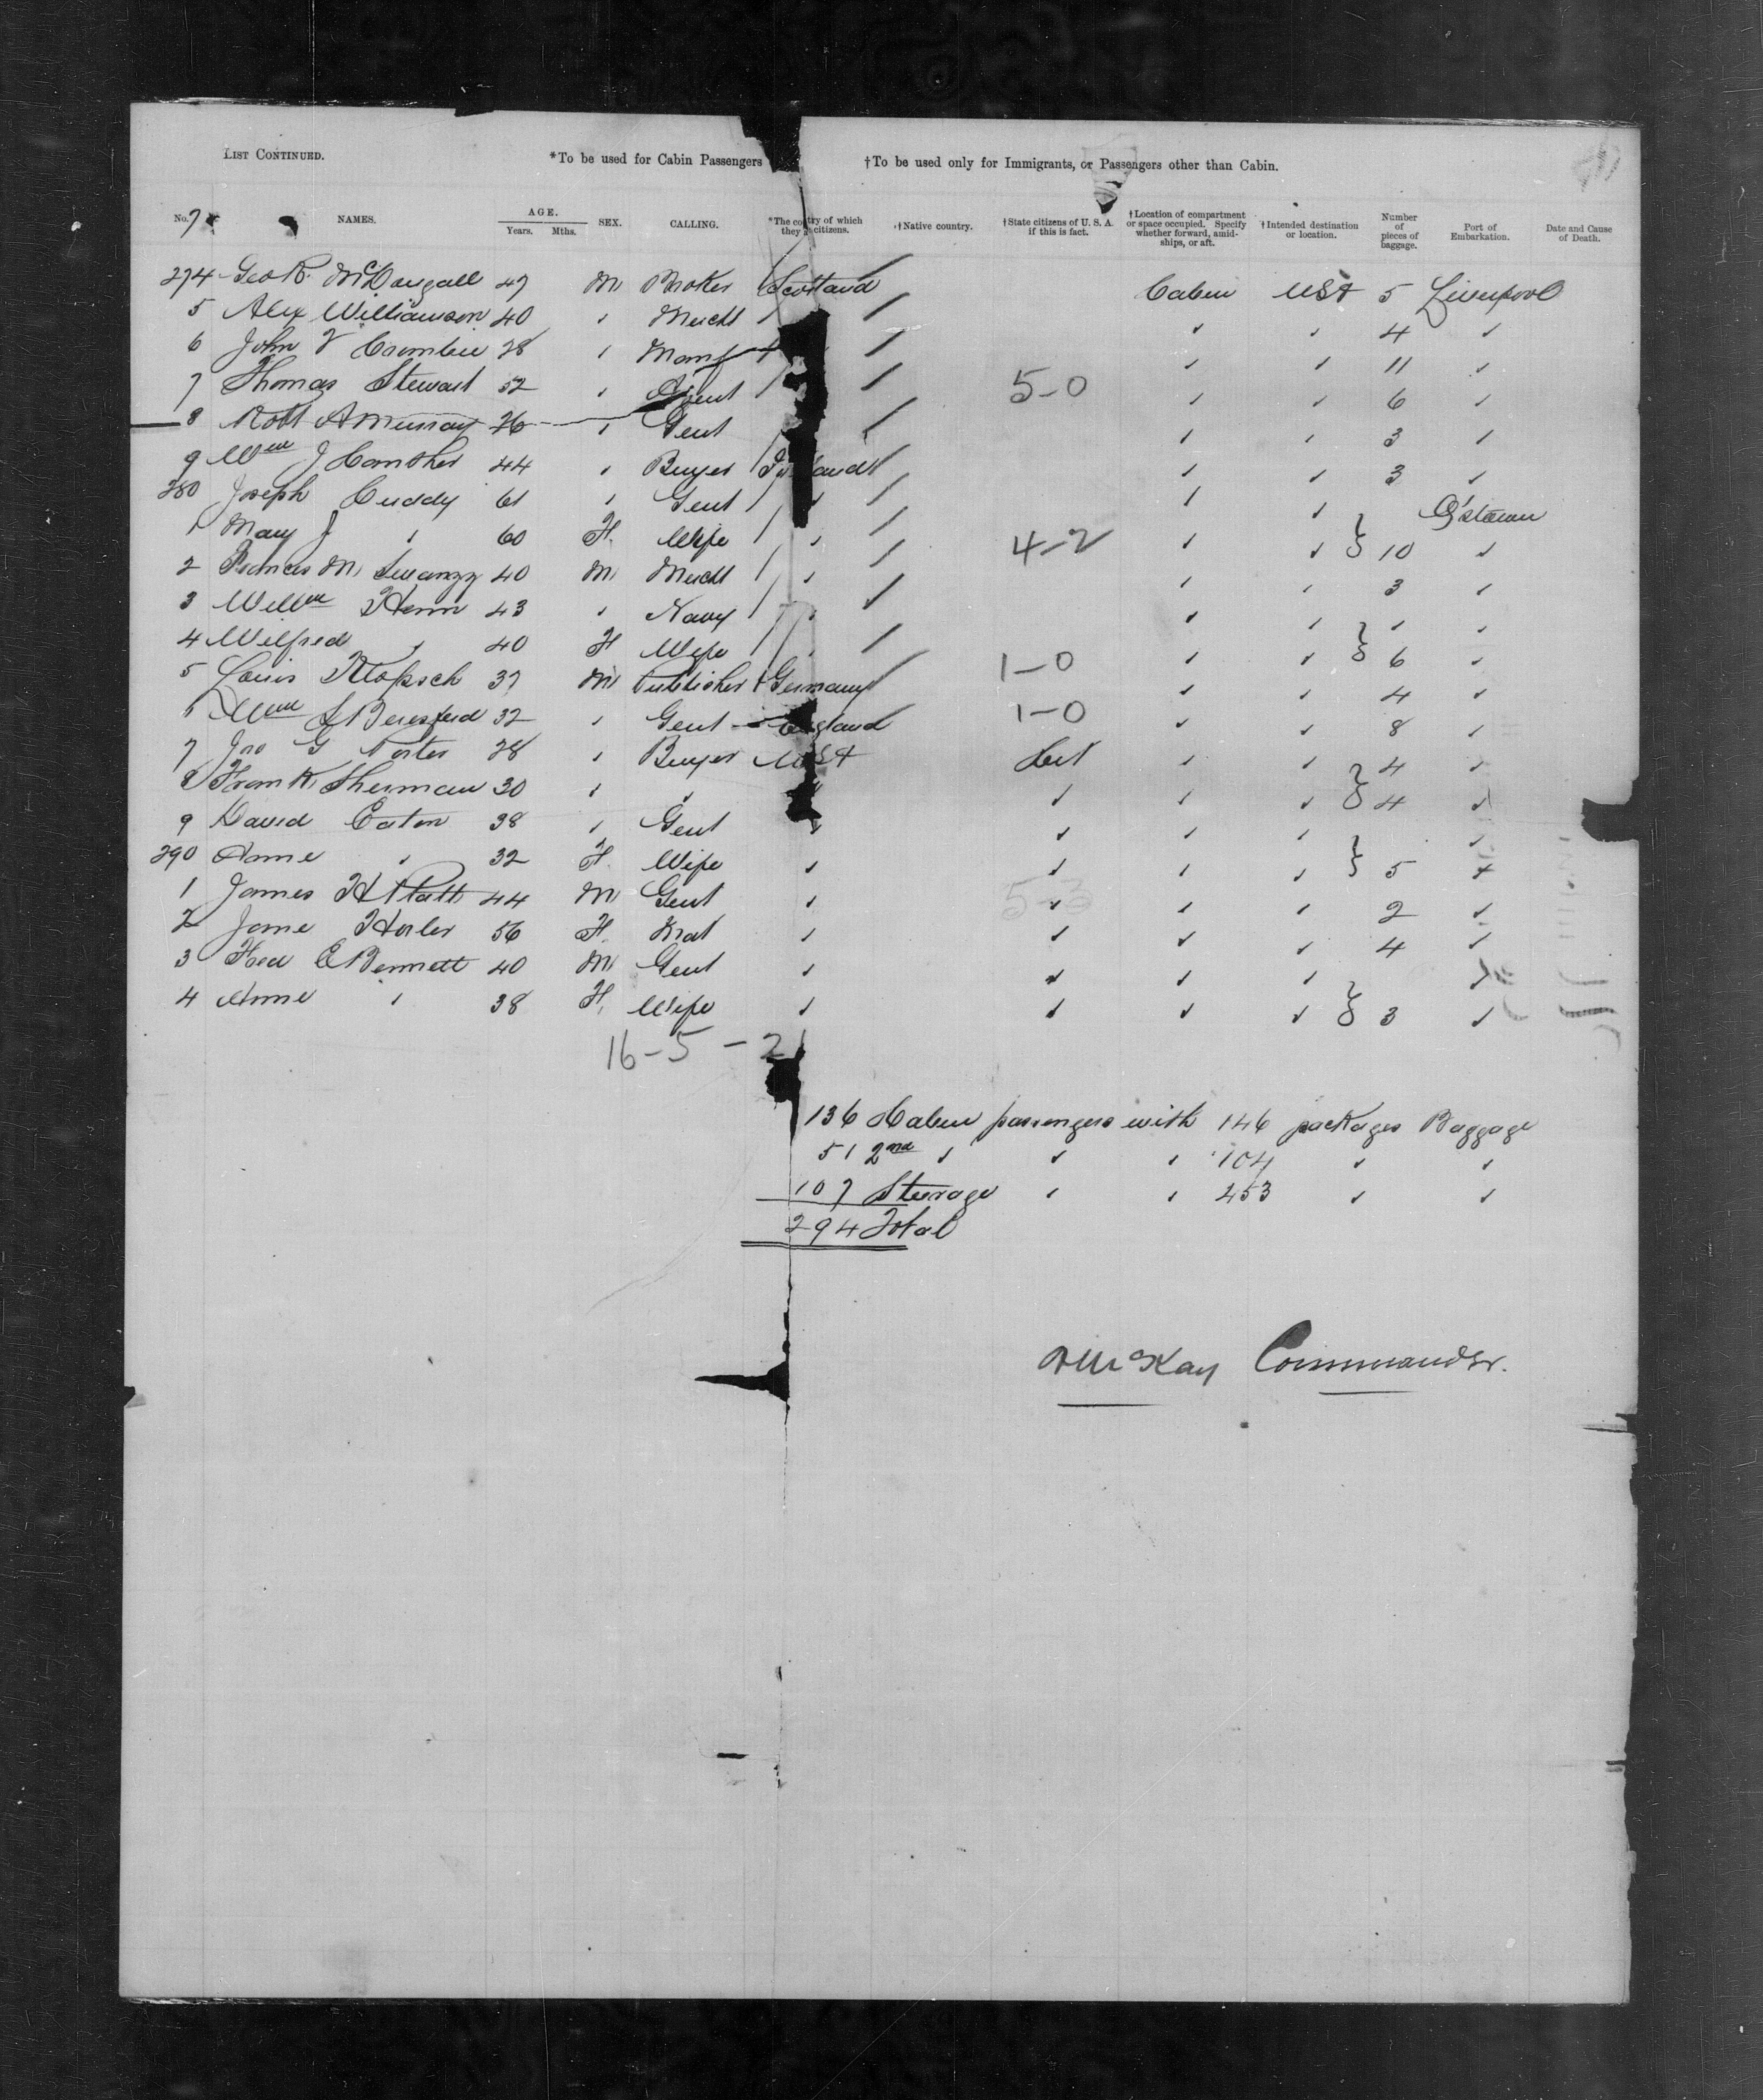 LIST CONTINUED. *To be used for Cabin Passengers †To be used only for Immigrants, or Passengers other than Cabin.
No. NAMES. AGE. Years. Mths. SEX. CALLING. *The country of which they citizens. †Native country. †State citizens of U. S. A. if this is fact. †Location of compartment or space occupied. Specify whether forward, amidships, or aft. †Intended destination or location. Number of pieces of baggage. Port of Embarkation. Date and Cause of Death.
274 Geo R. McDougall 47 M Broker Scotland Cabin USA 5 Liverpool
5 Alex Williamson 40 " Mercht 4 "
6 John Crombie 28 " Manf 11 "
7 Thomas Stewart 52 " Agent 5-0 6 "
8 Robt A Murray 26 " Gent 3 "
9 Wm J 44 " Buyer 3 "
280 Joseph Cuddy 61 " Gent " Q'stown
1 Mary J " 60 F. Wife " 4-2 10 "
2 Frances M. Swanzy 40 M Mercht " 3 "
3 Willm Henn 43 " Navy " "
4 Wilfred " 40 F Wife 6 "
5 Louis Klopsch 37 M Publisher Germany 1-0 4 "
6 Wm Beresford 32 " Gent England 1-0 8 "
7 Jno G Porter 28 " Buyer USA 4 "
8 Frank Sherman 30 " " " 4 "
9 David Eaton 38 " Gent " "
290 " 32 F. Wife " 5 "
1 James H Platt 44 M Gent " 5-3 2 "
2 Jane 56 F. " 4 "
3 Fred E Bennett 40 M Gent " "
4 Anne " 38 F. Wife " 3 "
16-5 - 21
136 Cabin passengers with 146 packages Baggage
51 2nd " " " 104 " "
107 Steerage " " 253 " "
294 Total
McKay Commander.